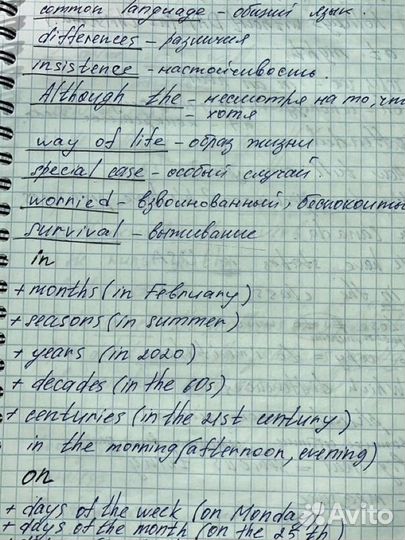 common language - общий язык.
differences - различия
insistence - настойчивость.
Although the - несмотря на то, что
- хотя
way of life - образ жизни
special case - особый случай
worried - взволнованный, беспокоиты
survival - выживание
in
+ months (in February)
+ seasons (in summer)
+ years (in 2020)
+ decades (in the 60s)
+ centuries (in the 21st century)
in the morning (afternoon, evening)
on
+ days of the week (on Monday)
+ days of the month (on the 25 th)
Avito